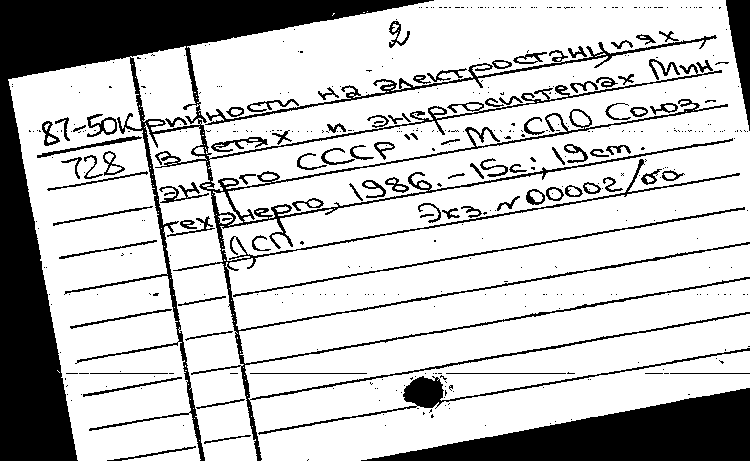 2
87-50К рийности на электростанциях,
728 в сетях и энергосистемах Мин-
энерго СССР". - М.: СПО Союз-
техэнерго, 1986. - 15с.; 19см.
ДСП. Экз. №00002/оо